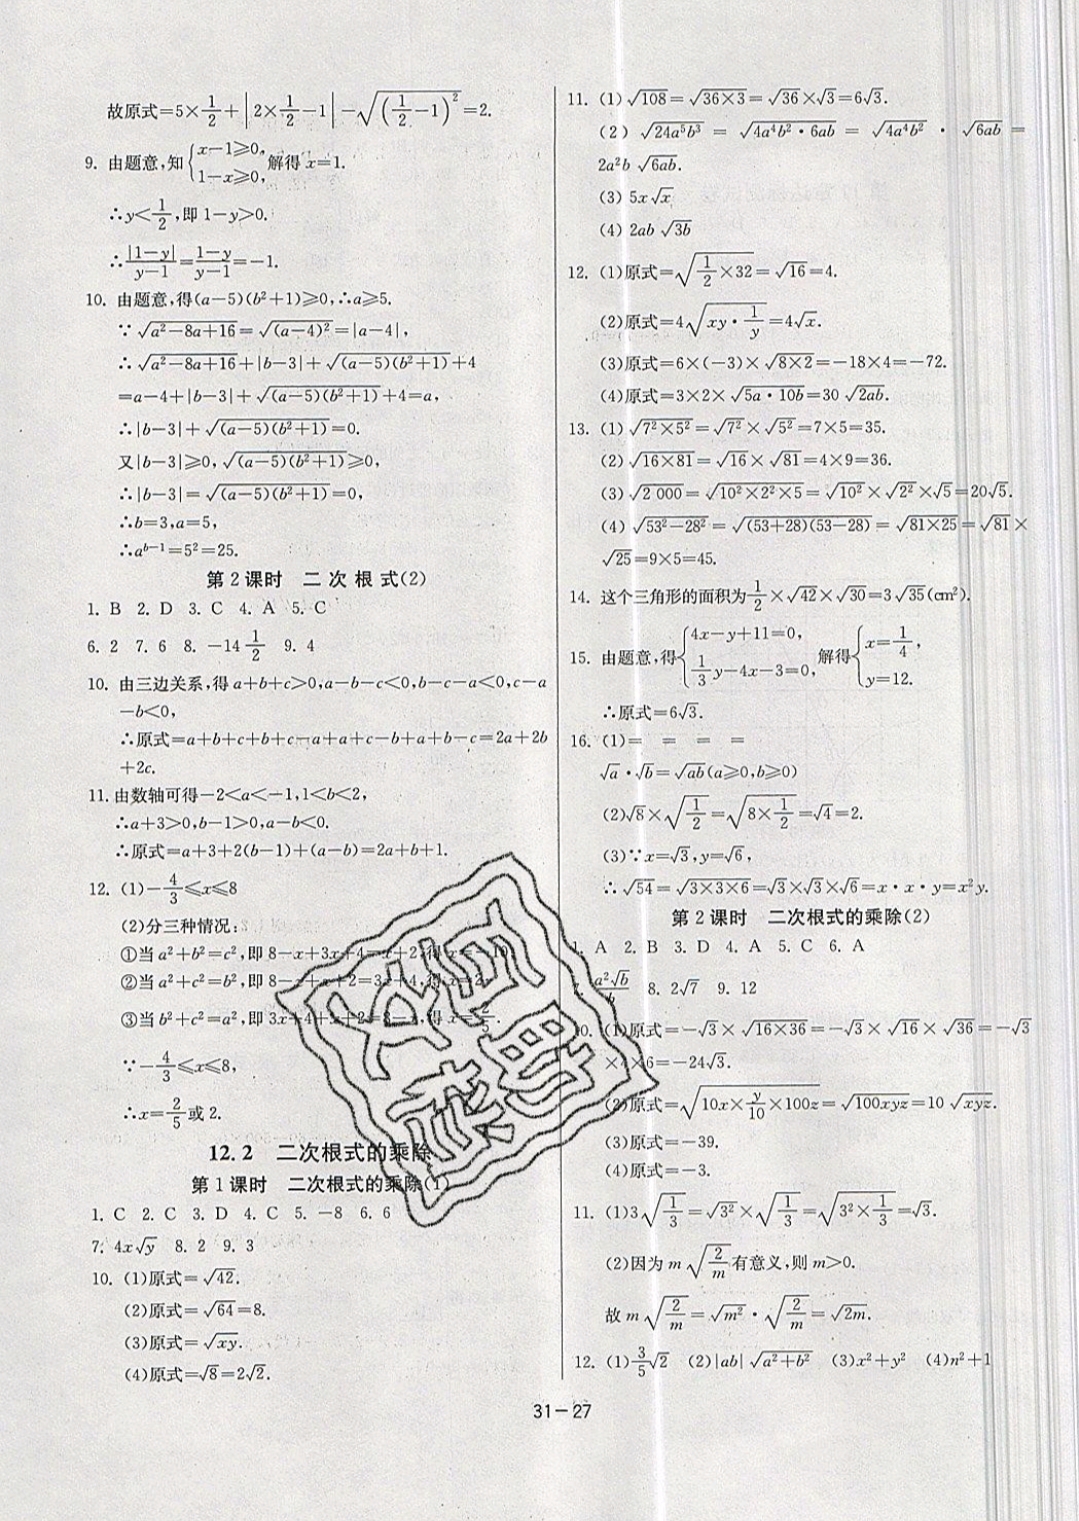 故原式=5×1/2+|2×1/2-1|-√((1/2-1)²)=2.
9. 由题意,知{x-1≥0, 1-x≥0, 解得 x=1.
∴y<1/2,即 1-y>0.
∴|1-y|/(y-1)=(1-y)/(y-1)=-1.
10. 由题意,得(a-5)(b²+1)≥0,∴a≥5.
∵√(a²-8a+16)=√((a-4)²)=|a-4|,
∴√(a²-8a+16)+|b-3|+√((a-5)(b²+1))+4
=a-4+|b-3|+√((a-5)(b²+1))+4=a,
∴|b-3|+√((a-5)(b²+1))=0.
又|b-3|≥0,√((a-5)(b²+1))≥0,
∴|b-3|=√((a-5)(b²+1))=0,
∴b=3,a=5,
∴a^(b-1)=5²=25.
第 2 课时 二 次 根 式(2)
1. B 2. D 3. C 4. A 5. C
6. 2 7. 6 8. -14 1/2 9. 4
10. 由三边关系,得 a+b+c>0,a-b-c<0,b-c-a<0,c-a
-b<0,
∴原式=a+b+c+b+c-a+a+c-b+a+b-c=2a+2b
+2c.
11. 由数轴可得-2<a<-1,1<b<2,
∴a+3>0,b-1>0,a-b<0.
∴原式=a+3+2(b-1)+(a-b)=2a+b+1.
12. (1)-4/3≤x≤8
(2)分三种情况:
①当 a²+b²=c²,即 8-x+3x+4=x+2,得 x=-10
②当 a²+c²=b²,即 8-x+x+2=3x+4,得 x=2
③当 b²+c²=a²,即 3x+4+x+2=8-x,得 x=2/5.
∵-4/3≤x≤8,
∴x=2/5或 2.
12. 2 二次根式的乘除
第 1 课时 二次根式的乘除(1)
1. C 2. C 3. D 4. C 5. -8 6. 6
7. 4x√y 8. 2 9. 3
10. (1)原式=√42.
(2)原式=√64=8.
(3)原式=√(xy).
(4)原式=√8=2√2.
11. (1)√108=√(36×3)=√36×√3=6√3.
(2) √(24a⁵b³) = √(4a⁴b²·6ab) = √(4a⁴b²) · √(6ab) =
2a²b √(6ab).
(3) 5x√x
(4) 2ab √(3b)
12. (1)原式=√(1/2×32)=√16=4.
(2)原式=4√(xy·1/y)=4√x.
(3)原式=6×(-3)×√(8×2)=-18×4=-72.
(4)原式=3×2×√(5a·10b)=30√(2ab).
13. (1)√(7²×5²)=√(7²)×√(5²)=7×5=35.
(2)√(16×81)=√16×√81=4×9=36.
(3)√(2 000)=√(10²×2²×5)=√(10²)×√(2²)×√5=20√5.
(4)√(53²-28²)=√((53+28)(53-28))=√(81×25)=√81×
√25=9×5=45.
14. 这个三角形的面积为1/2×√42×√30=3√35(cm²).
15. 由题意,得{4x-y+11=0, 1/3y-4x-3=0, 解得{x=1/4, y=12.
∴原式=6√3.
16. (1)= = = =
√a·√b=√(ab)(a≥0,b≥0)
(2)√8×√(1/2)=√(8×1/2)=√4=2.
(3)∵x=√3,y=√6,
∴√54=√(3×3×6)=√3×√3×√6=x·x·y=x²y.
第 2 课时 二次根式的乘除(2)
1. A 2. B 3. D 4. A 5. C 6. A
a²√b/b 8. 2√7 9. 12
10. (1)原式=-√3×√(16×36)=-√3×√16×√36=-√3
×4×6=-24√3.
(2)原式=√(10x×y/10×100z)=√(100xyz)=10√(xyz).
(3)原式=-39.
(4)原式=-3.
11. (1)3√(1/3)=√(3²)×√(1/3)=√(3²×1/3)=√3.
(2)因为 m√(2/m)有意义,则 m>0.
故 m√(2/m)=√(m²)·√(2/m)=√(2m).
12. (1)3/5√2 (2)|ab|√(a²+b²) (3)x²+y² (4)n²+1
31-27